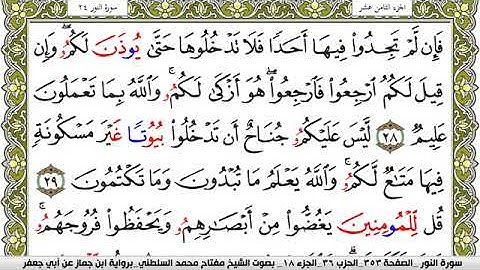 الجزء الثامن عشر
سورة النور ٢٤
فَإِن لَّمْ تَجِدُوا۟ فِيهَا أَحَدًا فَلَا تَدْخُلُوهَا حَتَّىٰ يُوذَنَ لَكُمُۥ وَإِن
قِيلَ لَكُمُ ٱرْجِعُوا۟ فَٱرْجِعُوا۟ هُوَ أَزْكَىٰ لَكُمُۥ وَٱللَّهُ بِمَا تَعْمَلُونَ
عَلِيمٌ ٢٨ لَيْسَ عَلَيْكُمُۥ جُنَاحٌ أَن تَدْخُلُوا۟ بُيُوتًا غَيْرَ مَسْكُونَةٍ
فِيهَا مَتَٰعٌ لَّكُمُۥ وَٱللَّهُ يَعْلَمُ مَا تُبْدُونَ وَمَا تَكْتُمُونَ ٢٩
قُل لِّلْمُومِنِينَ يَغُضُّوا۟ مِنْ أَبْصَٰرِهِمُۥ وَيَحْفَظُوا۟ فُرُوجَهُمُۥ
سورة النور_الصفحة ٣٥٣_الحزب ٣٦_الجزء ١٨_ بصوت الشيخ مفتاح محمد السلطني_برواية ابن جماز عن أبي جعفر